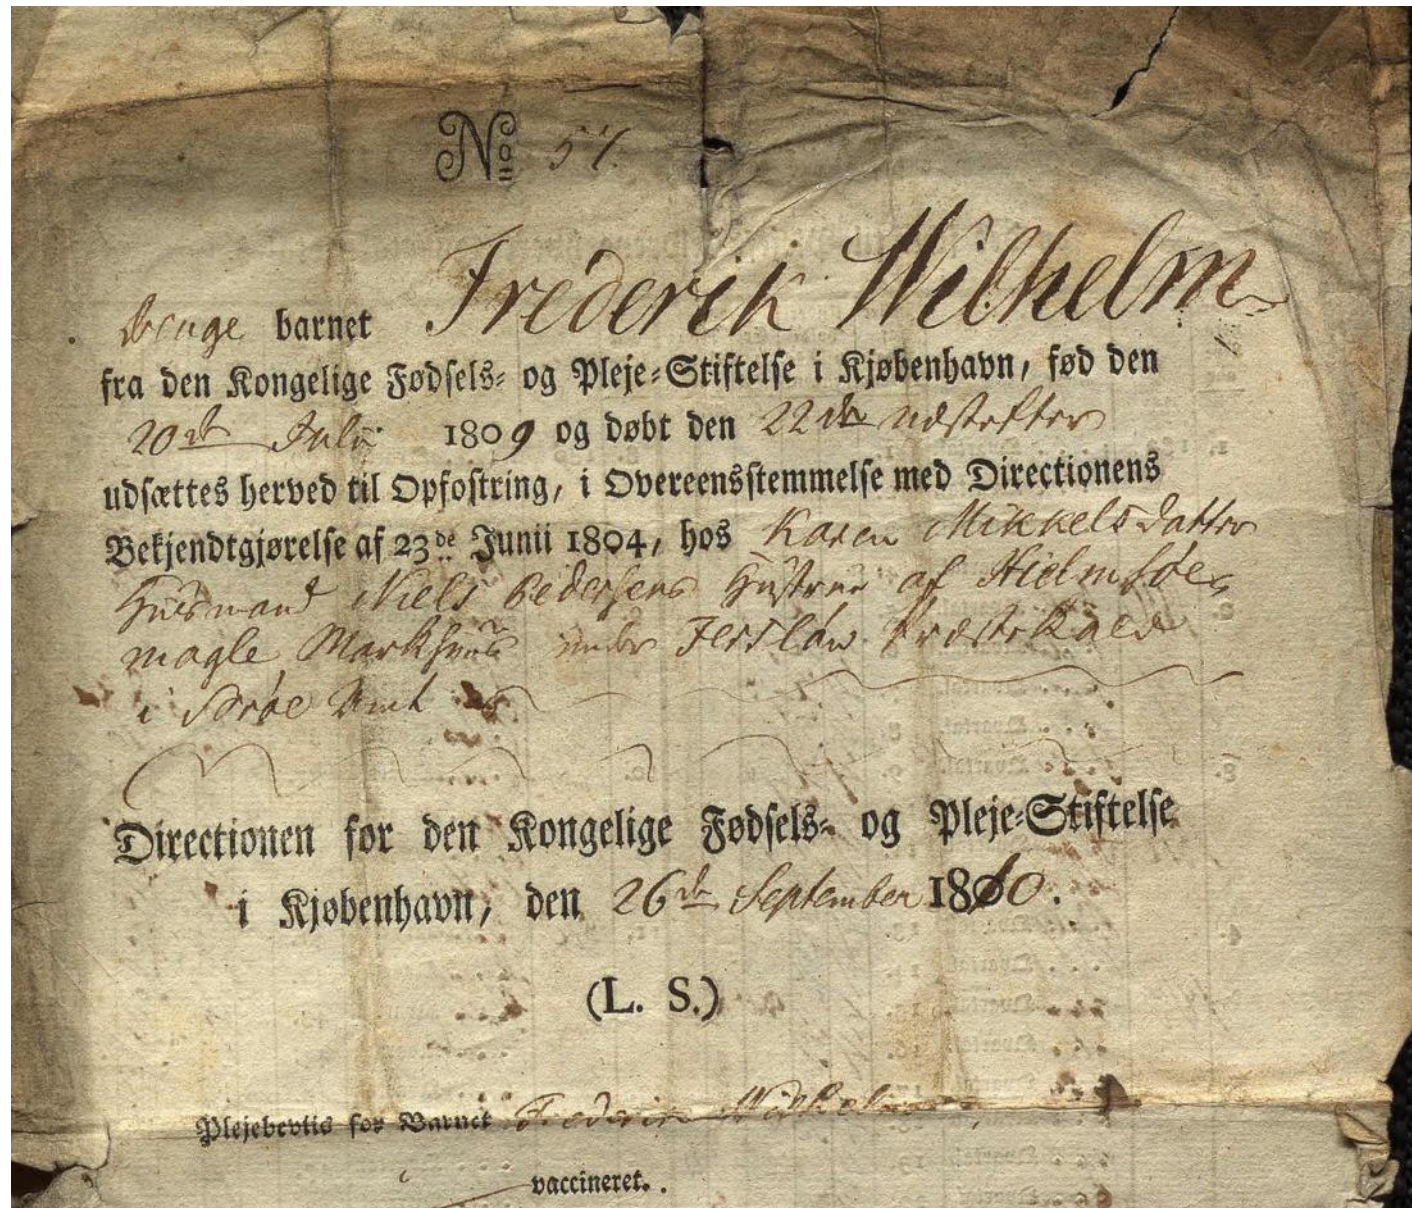 No 57.
Drenge barnet Frederik Wilhelm
fra den Kongelige Fødsels- og Pleje-Stiftelse i Kjøbenhavn, fød den
20de Julii 1809 og døbt den 22de næstefter
udsættes herved til Opfostring, i Overeensstemmelse med Directionens
Bekjendtgjørelse af 23de Junii 1804, hos Karen Mikkelsdatter
Huusmand Niels Pedersens Hustrue af Hielmsøe
magle Markhuus under Terslöw Præstekald
i Sorøe Amt
Directionen for den Kongelige Fødsels- og Pleje-Stiftelse
i Kjøbenhavn, den 26de September 1810.
(L. S.)
Plejebeviis for Barnet Frederik Wilhelm
vaccineret.